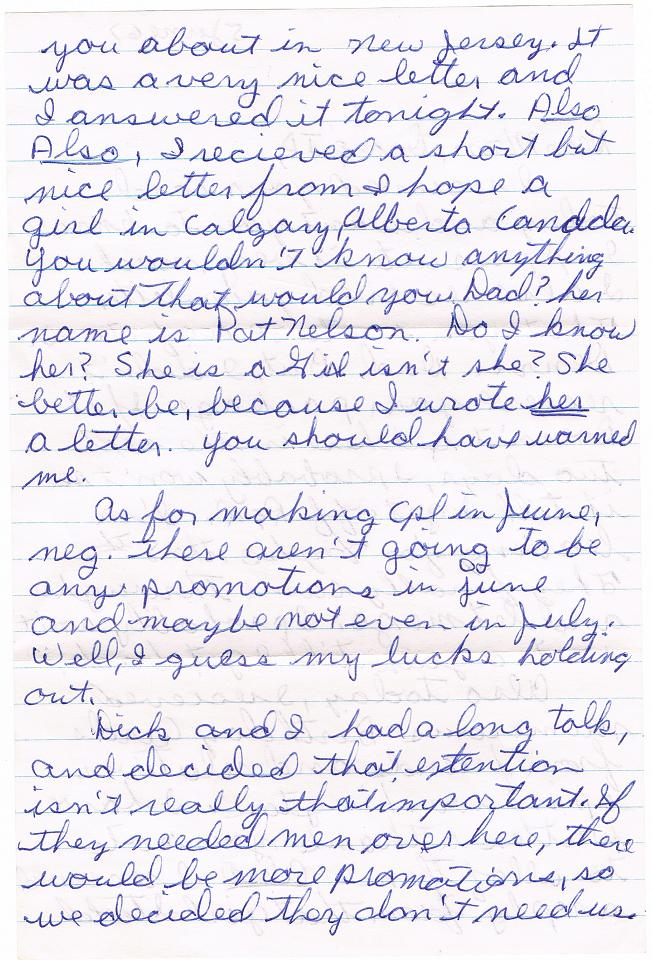 you about in new Jersey. It
was a very nice letter and
I answered it tonight. Also
Also, I recieved a short but
nice letter from I hope a
girl in Calgary, Alberta Candda.
You wouldn't know anything
about that would you Dad? her
name is Pat Nelson. Do I know
her? She is a Girl isn't she? She
better be, because I wrote her
a letter. you should have warned
me.
As for making Cpl in June,
neg. there aren't going to be
any promotions in June
and maybe not even in July.
Well, I guess my lucks holding
out.
Dick and I had a long talk,
and decided that estention
isn't really that important. If
they needed men over here, there
would be more promotions, so
we decided they don't need us.